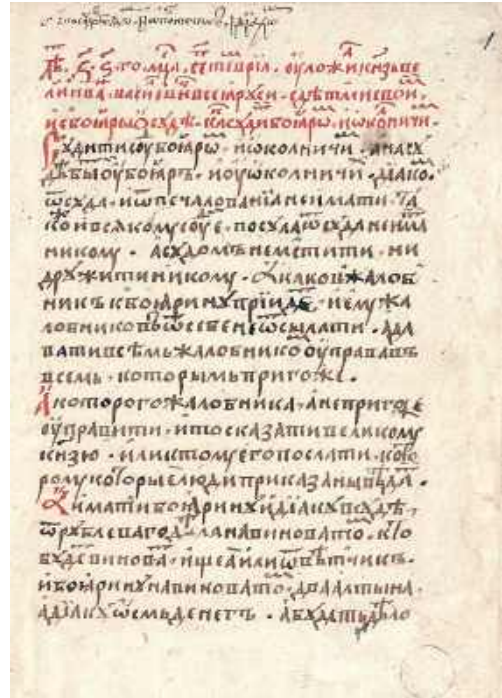 лѣ ҂з҃ ѕ҃ го мц҃а септеврїа . оуложи кнѧзь ве
ликїи іва васиевич всеѧ рꙋси с дѣтми свои
и с боꙗры ѡ сꙋдѣ . ка сꙋди боꙗрѡ и ѡколничи .
Сꙋдити сꙋ боꙗрѡ . и ѡколничи . а на сꙋ
дѣ быти оу боꙗръ . и оу ѡколничи . дїако
а ѿ сꙋда . и ѿ печалованїа не имати . та
кои всѧкому сꙋе . посꙋла ѿ сꙋда не има
никому . а сꙋдомъ не мстити . ни
дрꙋжити никому . А каков жалоб
никъ к боꙗринꙋ прїиде . и емꙋ жа
лобниковъ ѿ себе не ѿсылати . а да
вати всѣмь жалобнико оуправа въ
всемь . которымь пригоже .
А которого жалобника . а не пригоже
оуправити . и то сказати великому
кнѧзю . или к тому его послати . кото
рому которые люди приказаны вѣда .
А имати боꙗринꙋ и дїакꙋ в сꙋдѣ
ѿ рꙋблева го дѣла на виновато . кто
бꙋде винова . ищеа или ѿвѣтчикъ .
и боꙗринꙋ на виновато . два алтына .
а дїакꙋ ѡсмь денегъ . а бꙋдеть дѣло